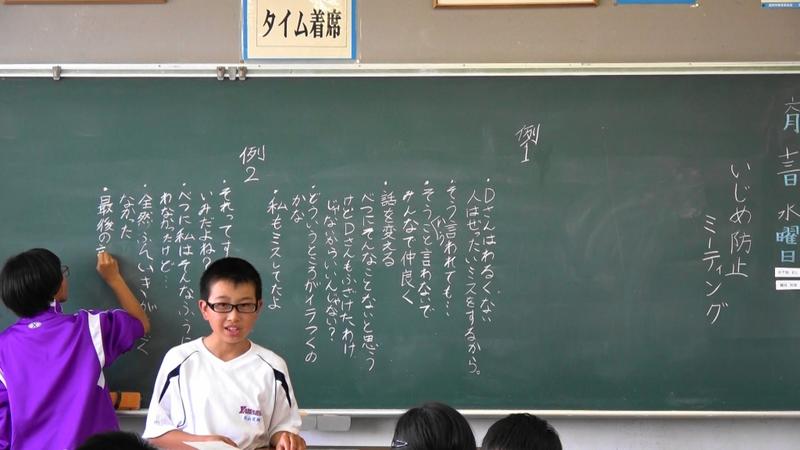 タイム着席
六月
十二日
水曜日
いじめ防止
ミーティング
例1
・Dさんはわるくない
人はぜったいミスをするから。
・そう言われても…
・そうこと言わないで
みんなで仲良く
・話を変える
・べつにそんなことないと思う
けどDさんもふざけたわけ
じゃなからいいんじゃない？
・どういうところがイラつくの
かな
・私もミスしてたよ
例2
・それってす
いみだよね?
・べつに私はそんなふうに
わなかったけど…
・全然ふんいきが
なかった
・最後の